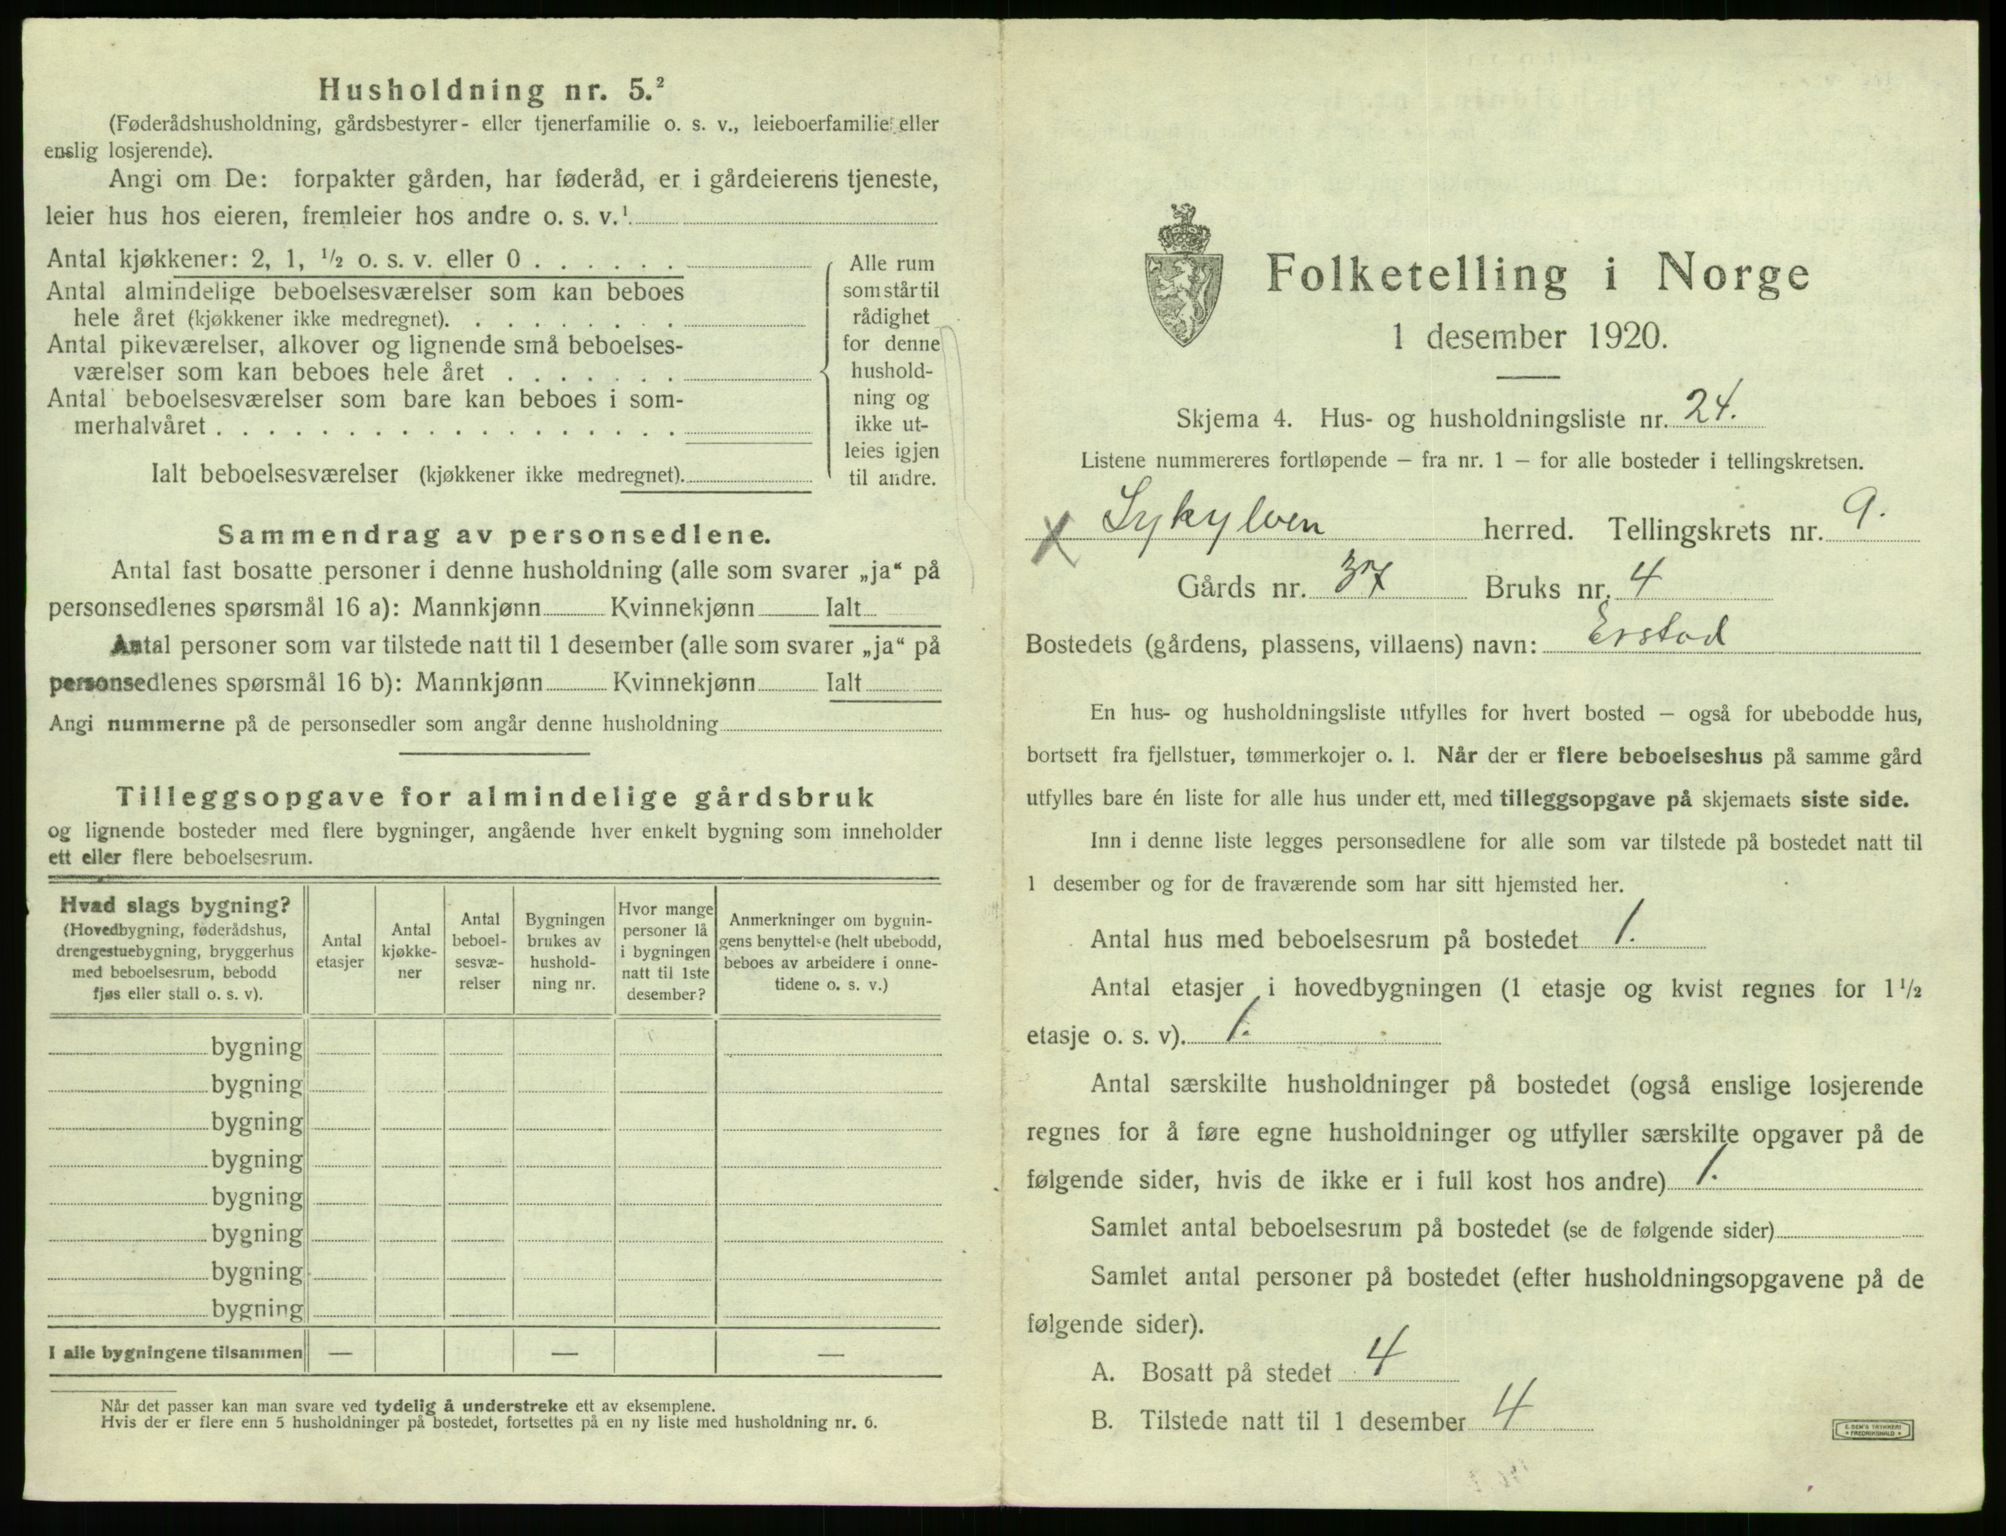 Husholdning nr. 5.²
(Føderådshusholdning, gårdsbestyrer- eller tjenerfamilie o. s. v., leieboerfamilie eller
enslig losjerende).
Angi om De: forpakter gården, har føderåd, er i gårdeierens tjeneste,
leier hus hos eieren, fremleier hos andre o. s. v.¹
Antal kjøkkener: 2, 1, ½ o. s. v. eller 0 . . . . . .
Antal almindelige beboelsesværelser som kan beboes
hele året (kjøkkener ikke medregnet). . . . . . . . .
Antal pikeværelser, alkover og lignende små beboelses-
værelser som kan beboes hele året . . . . . . .
Antal beboelsesværelser som bare kan beboes i som-
merhalvåret . . . . . . . . . . . . . . . . . .
Ialt beboelsesværelser (kjøkkener ikke medregnet).
Alle rum
som står til
rådighet
for denne
hushold-
ning og
ikke ut-
leies igjen
til andre.
Sammendrag av personsedlene.
Antal fast bosatte personer i denne husholdning (alle som svarer „ja“ på
personsedlenes spørsmål 16 a): Mannkjønn Kvinnekjønn Ialt
Antal personer som var tilstede natt til 1 desember (alle som svarer „ja“ på
personsedlenes spørsmål 16 b): Mannkjønn Kvinnekjønn Ialt
Angi nummerne på de personsedler som angår denne husholdning
Tilleggsopgave for almindelige gårdsbruk
og lignende bosteder med flere bygninger, angående hver enkelt bygning som inneholder
ett eller flere beboelsesrum.
Hvad slags bygning?
(Hovedbygning, føderådshus,
drengestuebygning, bryggerhus
med beboelsesrum, bebodd
fjøs eller stall o. s. v).
Antal
etasjer
Antal
kjøkke-
ner
Antal
beboel-
sesvæ-
relser
Bygningen
brukes av
hushold-
ning nr.
Hvor mange
personer lå
i bygningen
natt til 1ste
desember?
Anmerkninger om bygnin-
gens benyttelse (helt ubebodd,
beboes av arbeidere i onne-
tidene o. s. v.)
bygning
bygning
bygning
bygning
bygning
bygning
bygning
bygning
I alle bygningene tilsammen — — —
Når det passer kan man svare ved tydelig å understreke ett av eksemplene.
Hvis der er flere enn 5 husholdninger på bostedet, fortsettes på en ny liste med husholdning nr. 6.
Folketelling i Norge
1 desember 1920.
Skjema 4. Hus- og husholdningsliste nr. 24.
Listene nummereres fortløpende – fra nr. 1 – for alle bosteder i tellingskretsen.
X Sykylven herred. Tellingskrets nr. 9.
Gårds nr. 37 Bruks nr. 4
Bostedets (gårdens, plassens, villaens) navn: Erstad
En hus- og husholdningsliste utfylles for hvert bosted – også for ubebodde hus,
bortsett fra fjellstuer, tømmerkojer o. l. Når der er flere beboelseshus på samme gård
utfylles bare én liste for alle hus under ett, med tilleggsopgave på skjemaets siste side.
Inn i denne liste legges personsedlene for alle som var tilstede på bostedet natt til
1 desember og for de fraværende som har sitt hjemsted her.
Antal hus med beboelsesrum på bostedet 1.
Antal etasjer i hovedbygningen (1 etasje og kvist regnes for 1½
etasje o. s. v). 1.
Antal særskilte husholdninger på bostedet (også enslige losjerende
regnes for å føre egne husholdninger og utfyller særskilte opgaver på de
følgende sider, hvis de ikke er i full kost hos andre) 1.
Samlet antal beboelsesrum på bostedet (se de følgende sider)
Samlet antal personer på bostedet (efter husholdningsopgavene på de
følgende sider).
A. Bosatt på stedet 4
B. Tilstede natt til 1 desember 4
E. SEM'S TRYKKERI
• FREDRIKSHALD •